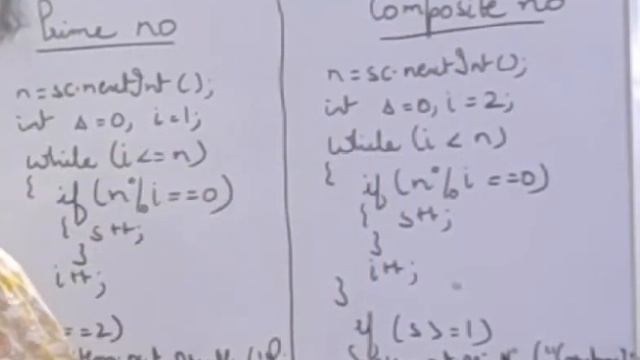 Prime no
n=sc.nextInt();
int s=0, i=1;
while (i<=n)
{ if (n%i==0)
{ s++;
}
i++;
==2)
Composite no
n=sc.nextInt();
int s=0, i=2;
while (i<n)
{ if (n%i==0)
{ s++;
}
i++;
}
if (s>=1)